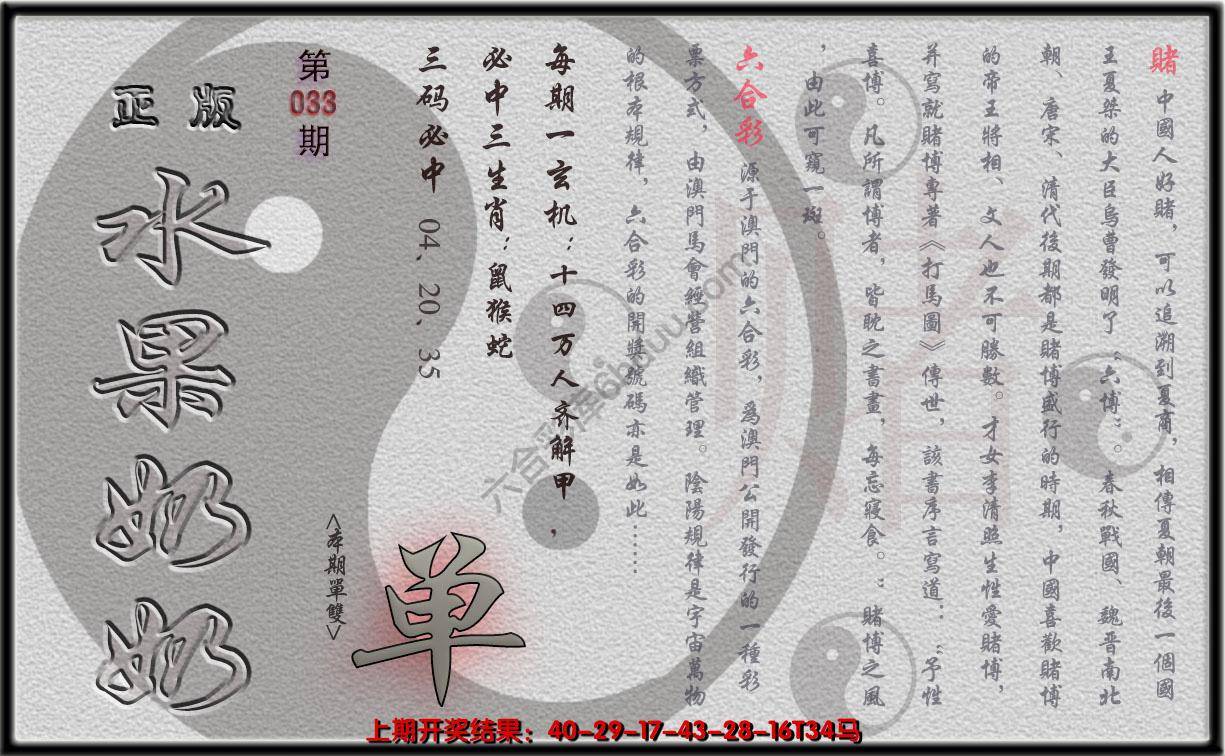 賭 中國人好賭，可以追溯到夏商，相傳夏朝最後一個國
王夏桀的大臣烏曹發明了“六博”。春秋戰國、魏晋南北
朝、唐宋、清代後期都是賭博盛行的時期，中國喜歡賭博
的帝王將相、文人也不可勝數。才女李清照生性愛賭博，
并寫就賭博專著《打馬圖》傳世，該書序言寫道：“予性
喜博。凡所謂博者，皆耽之書畫，每忘寢食。”賭博之風
，由此可窺一斑。
六合彩 源于澳門的六合彩，爲澳門公開發行的一種彩
票方式，由澳門馬會經營組織管理。陰陽規律是宇宙萬物
的根本規律，六合彩的開獎號碼亦是如此……
每期一玄机：十四万人齐解甲，
必中三生肖：鼠猴蛇
三码必中 04、20、35
第
033
期
正版
水果奶奶
<本期單雙>
单
上期开奖结果：40-29-17-43-28-16T34马